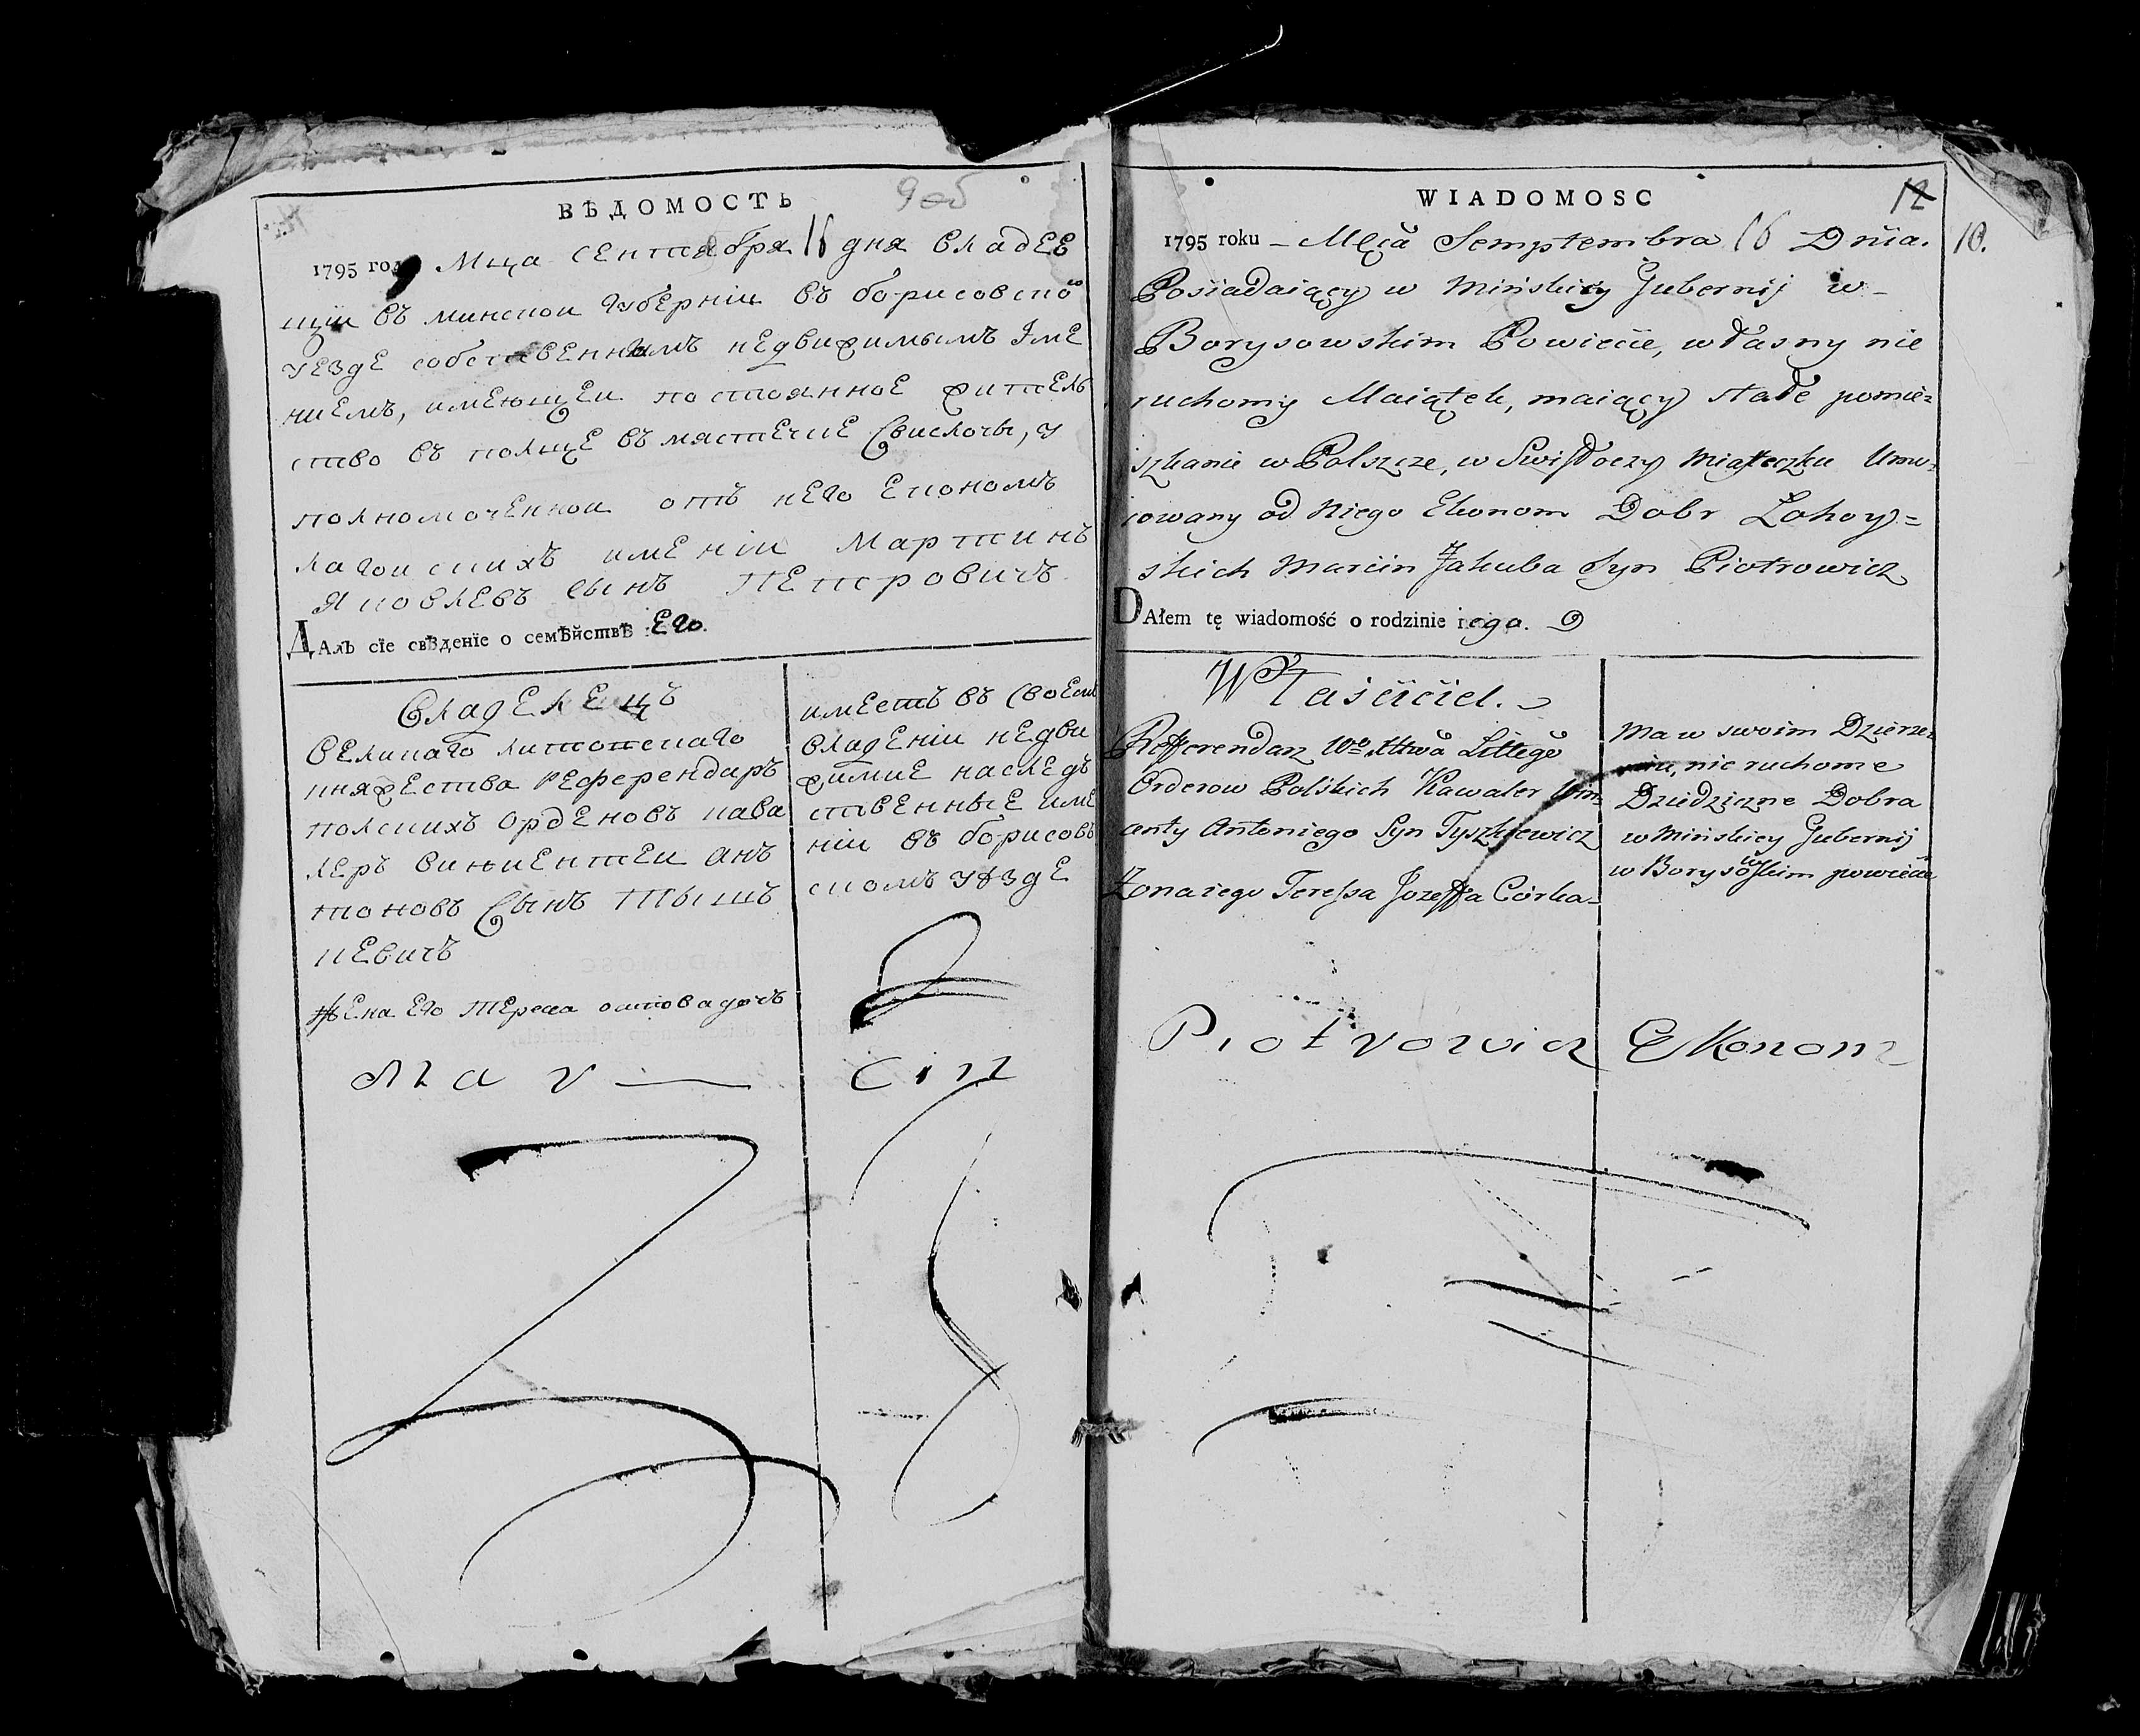 ВѢДОМОСТЬ
9 об
1795 года Мца Сентября 16 дня владее
щии въ минскои губерніи въ борисовско
уезде собственнымъ недвижимымъ Име
ниемъ, имеющеи постоянное жител
ство въ полще въ мястечке Свислочы, у
полномоченнои отъ него Економъ
лагоискихъ имении Мартинъ
Яковлевъ сынъ Петровичъ
ДАлъ сїе свѣденїе о семѣйствѣ Его.
Владелецъ
великаго литовскаго
княжества референдаръ
полскихъ орденовъ кава
леръ викентеи ан
тоновъ Сынъ Тыш
кевичъ
жена Его Тереса дочъ
имеетъ въ своем
владении недви
жимые наслед
ственные име
нии въ борисов
скомъ уезде
Mar — cin
WIADOMOSC
12
10.
1795 roku – Mcą Semptembra 16 Dnia.
Posiadaiący w Mińskiey Gubernij w-
Borysowskim Powiecie, własny nie
ruchomy Maiątek, maiący stałe pomie=
szkanie w Polszcze, w Swisłoczy Miąteczku Umo=
cowany od Niego Ekonom Dobr Łohoy=
skich Marcin Jakuba Syn Piotrowicz
DAłem tę wiadomość o rodzinie iego.
Właściciel.
Refferendarz Wo Xttwa Littego
Orderow Polskich Kawaler Win=
centy Antoniego Syn Tyszkiewicz
Zona iego Teressa Jozeffa Córka-
Ma w swoim Dzierże=
niu, nie ruchome
Dziedziczne Dobra
w Mińskiey Gubernij
w Borysowskim powiecie
Piotrowicz Ekonom